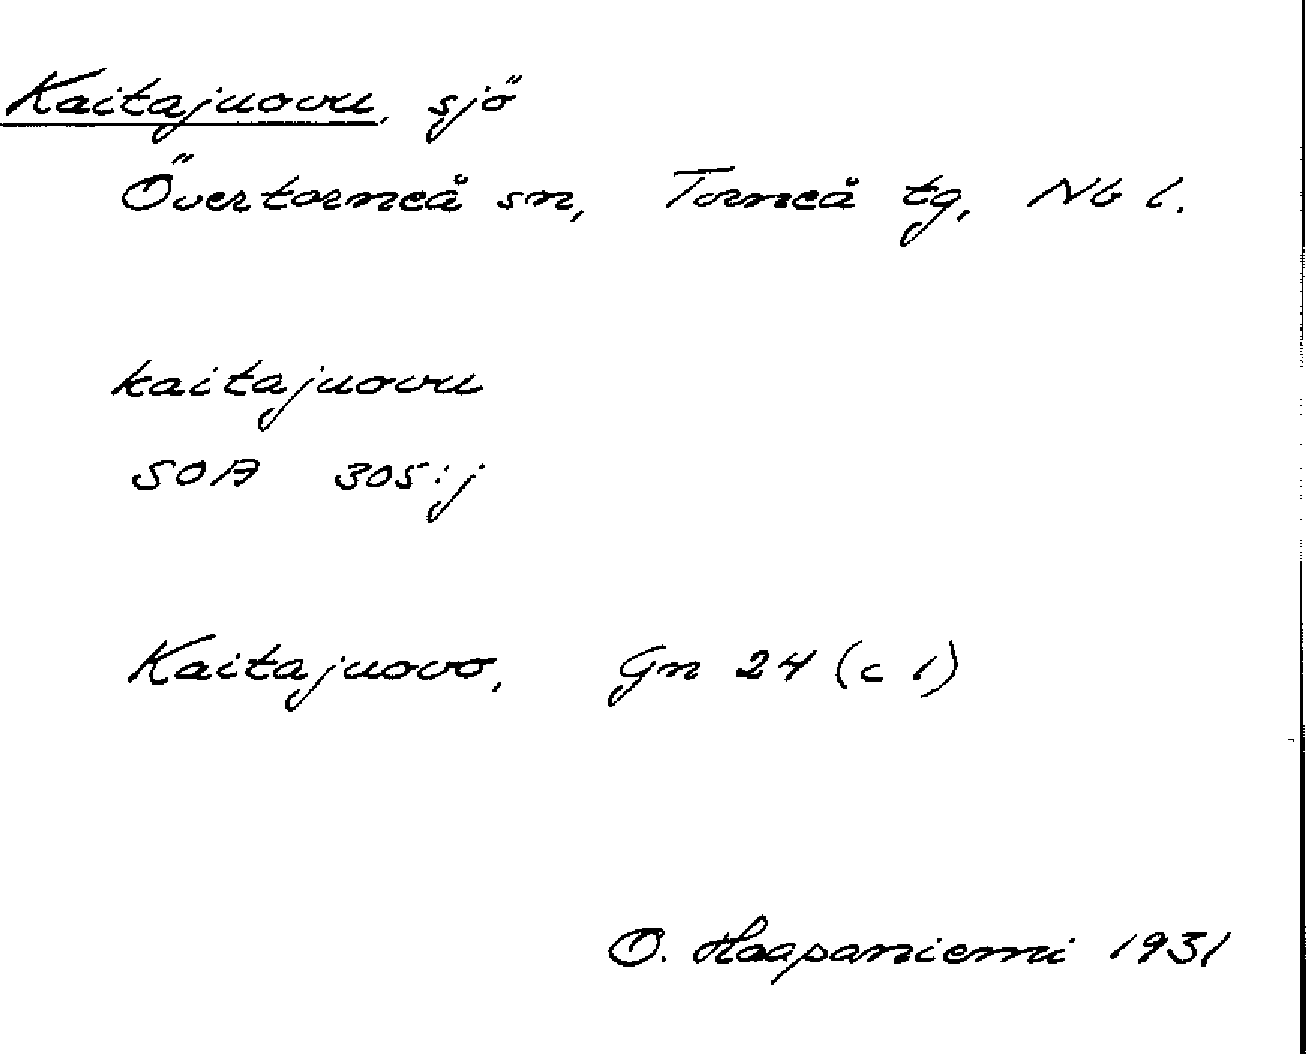 Kaitajuovu, sjö
Övertorneå sn, Torneå tg, Nb l.
kaitajuovu
SOA 305:j
Kaitajuovo, Gn 24 (c 1)
O. Haapaniemi 1931